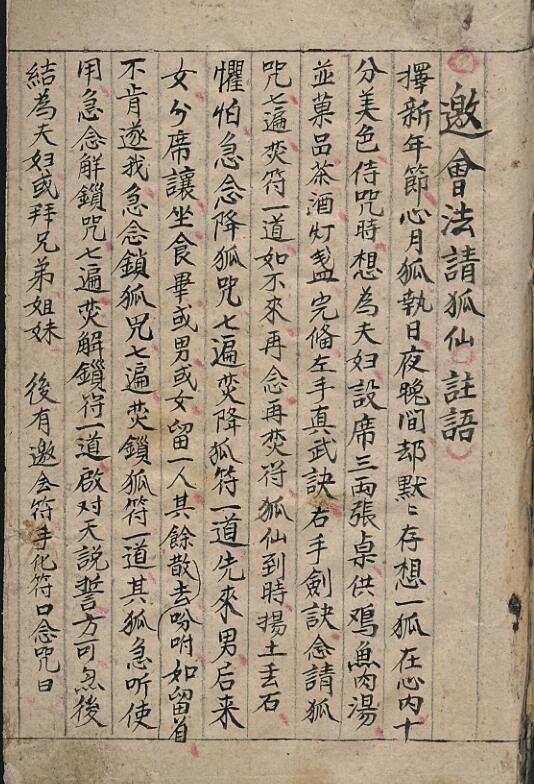 邀會法請狐仙註語
擇新年節心月狐執日夜晚间却默〻存想一狐在心内十
分美色侍咒時想為夫妇設席三両張桌供鸡魚肉湯
並菓品茶酒灯盞完俻左手真武訣右手劍訣念請狐
咒七遍焚符一道如不來再念再焚符狐仙到時揚土丢石
懼怕急念降狐咒七遍焚降狐符一道先來男后来
女分席讓坐食畢或男或女留一人其餘散去吩咐如留首
不肯遂我急念鎖狐咒七遍焚鎖狐符一道其狐急听使
用急念解鎖咒七遍焚解鎖符一道啟对天説誓方可急後
結為夫妇或拜兄弟姐妹 後有邀会符手化符口念咒曰